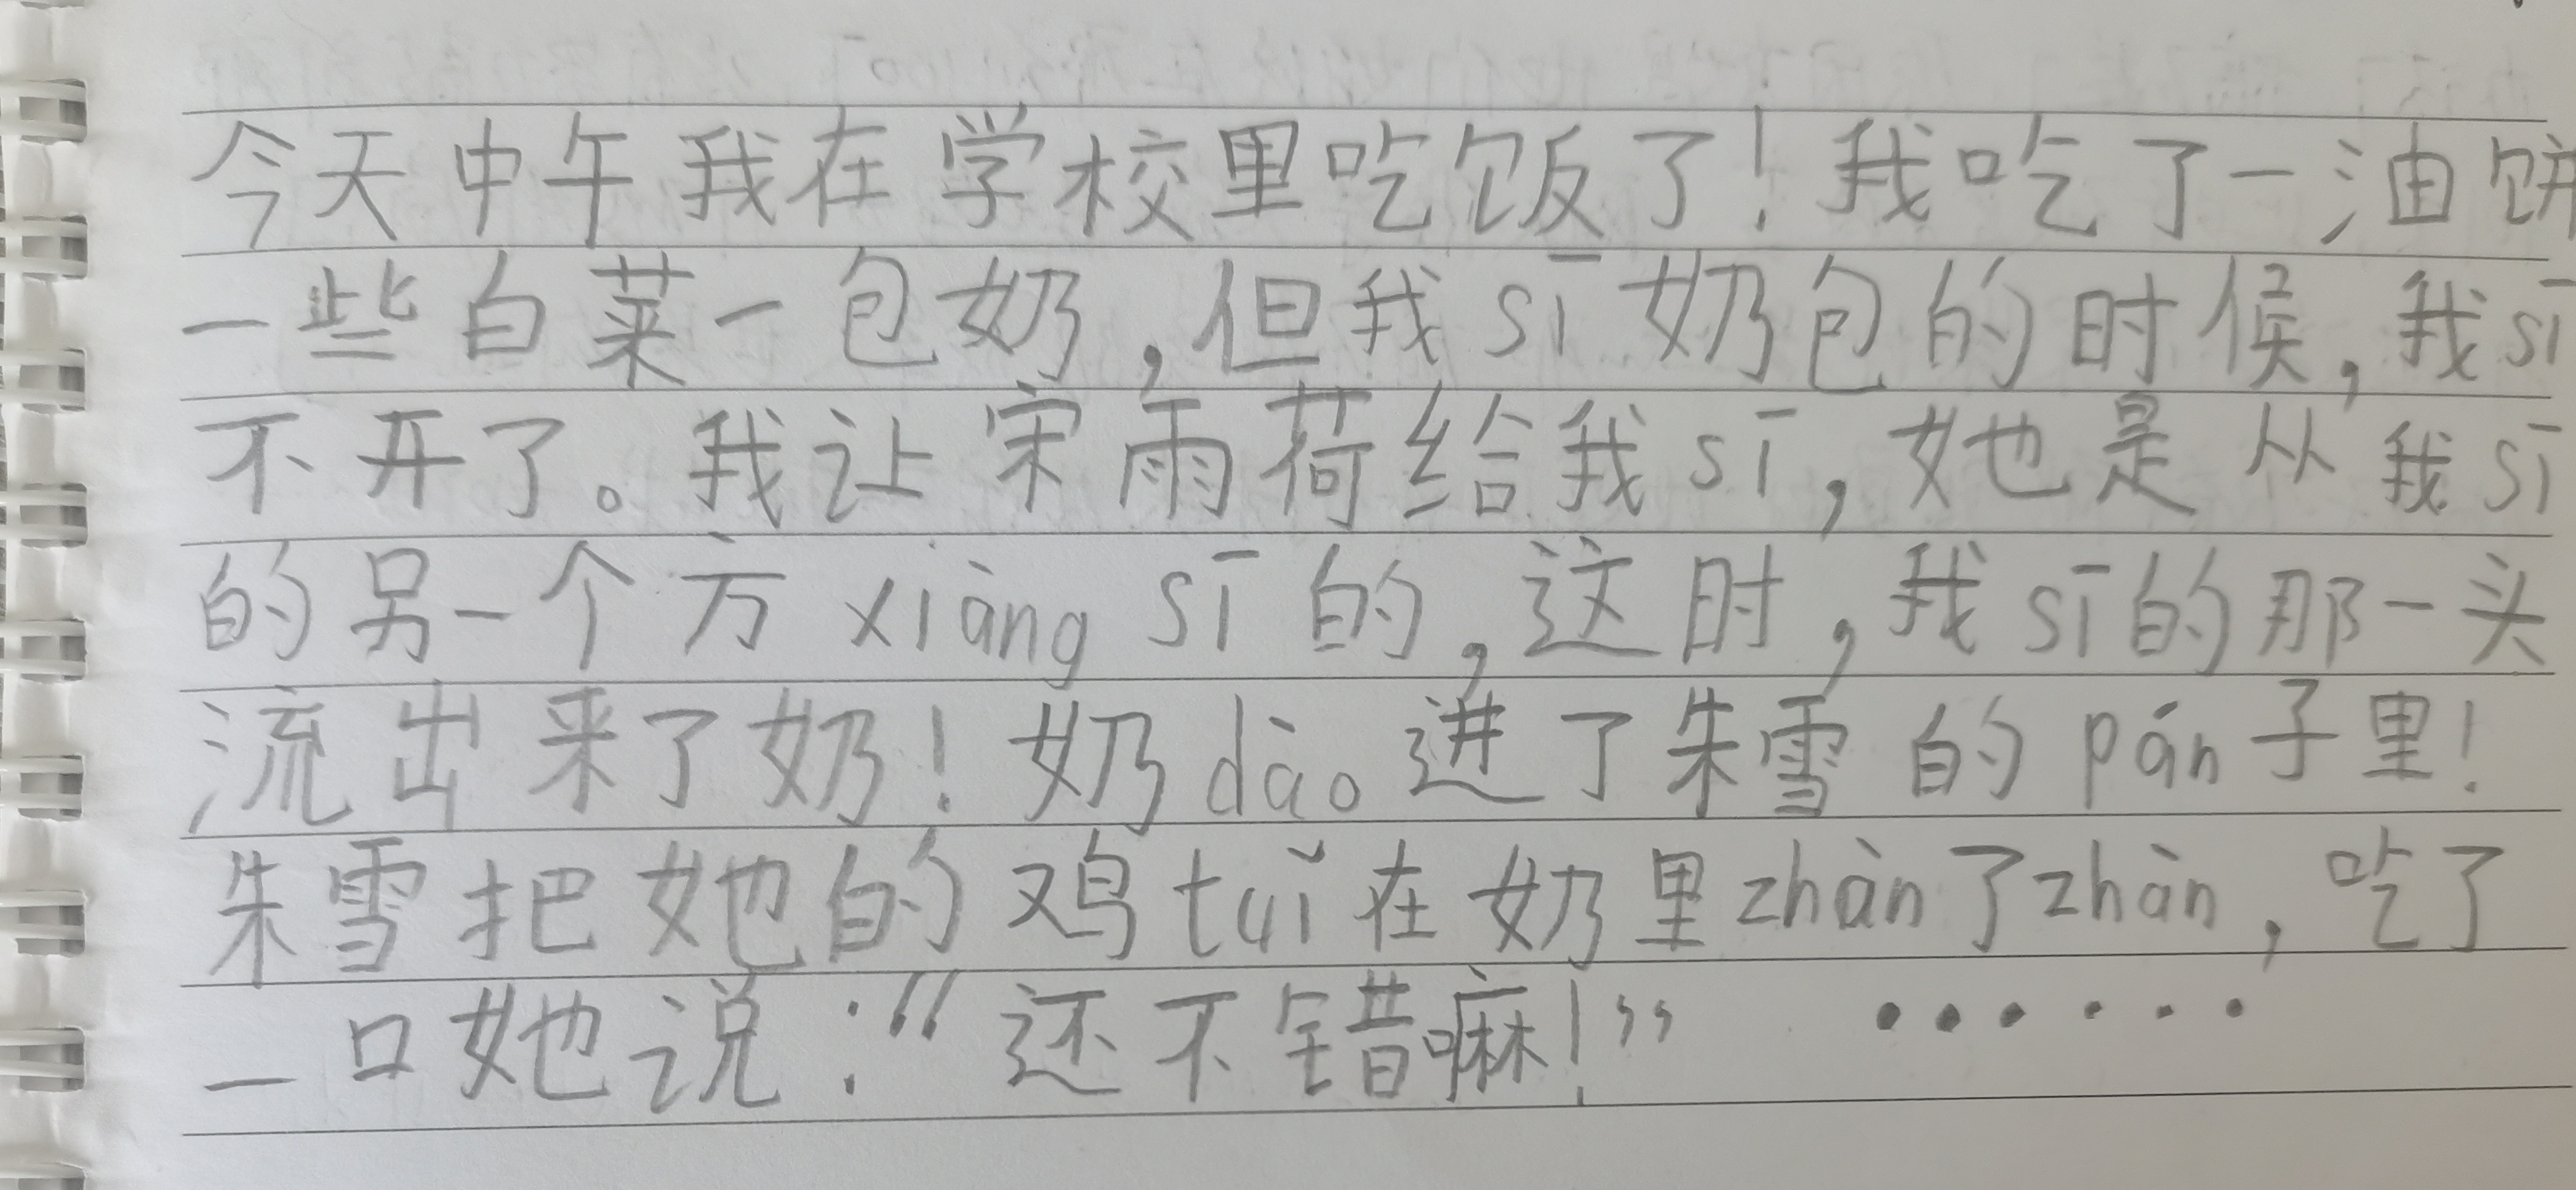 今天中午我在学校里吃饭了！我吃了一油饼
一些白菜一包奶，但我sī奶包的时候，我sī
不开了。我让宋雨荷给我sī，她是从我sī
的另一个方xiàng sī的，这时，我sī的那一头
流出来了奶！奶dào进了朱雪的pán子里！
朱雪把她的鸡tuǐ在奶里zhàn了zhàn，吃了
一口她说：“还不错嘛！” ······